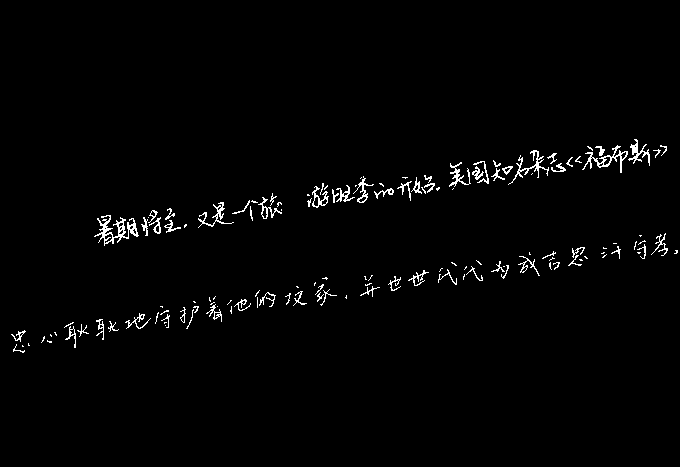 暑期将至，又是一个旅 游旺季的开始。美国知名杂志《福布斯》
忠心耿耿地守护着他的坟冢，并世世代代为成吉思汗守孝。